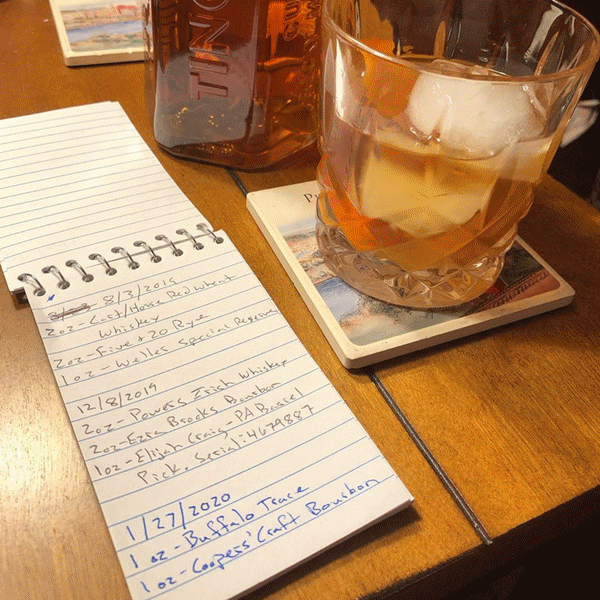 TINC
8/3/2019
2oz-Cast/Horse Red Wheat
Whiskey
2oz-Five & 20 Rye
1oz-Weller Special Reserve
12/8/2019
2oz-Powers Irish Whiskey
2oz-Ezra Brooks Bourbon
1oz-Elijah Craig-PA Barrel
Pick. Serial: 4679887
1/27/2020
1 oz-Buffalo Trace
1oz-Coopers' Craft Bourbon